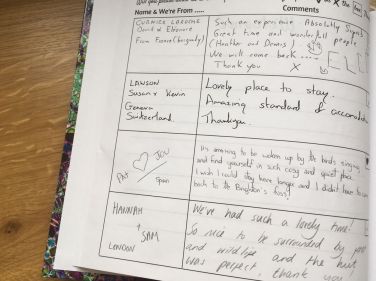 Name & We're From...
Comments
David & Eleonore
From France (burgundy)
Such an experience. Absolutely
Great time and wonderfull people
(Heather and Dennis)
We will come back.....
Thank you X
LAWSON
Susan & Kevin
Geneva
Switzerland.
Lovely place to stay.
Amazing standard of
Thankyou
PAT ♡ JON
Spain
It's amazing to be woken up by the birds singing
and find yourself in such cosy and quiet place.
I wish I could stay here longer and I didn't have to
back to the Brighton's fuss!
HANNAH
& SAM
LONDON
We've had such a lovely time!
So nice to be surrounded by
and wildlife and the hut
was perfect, thank you!